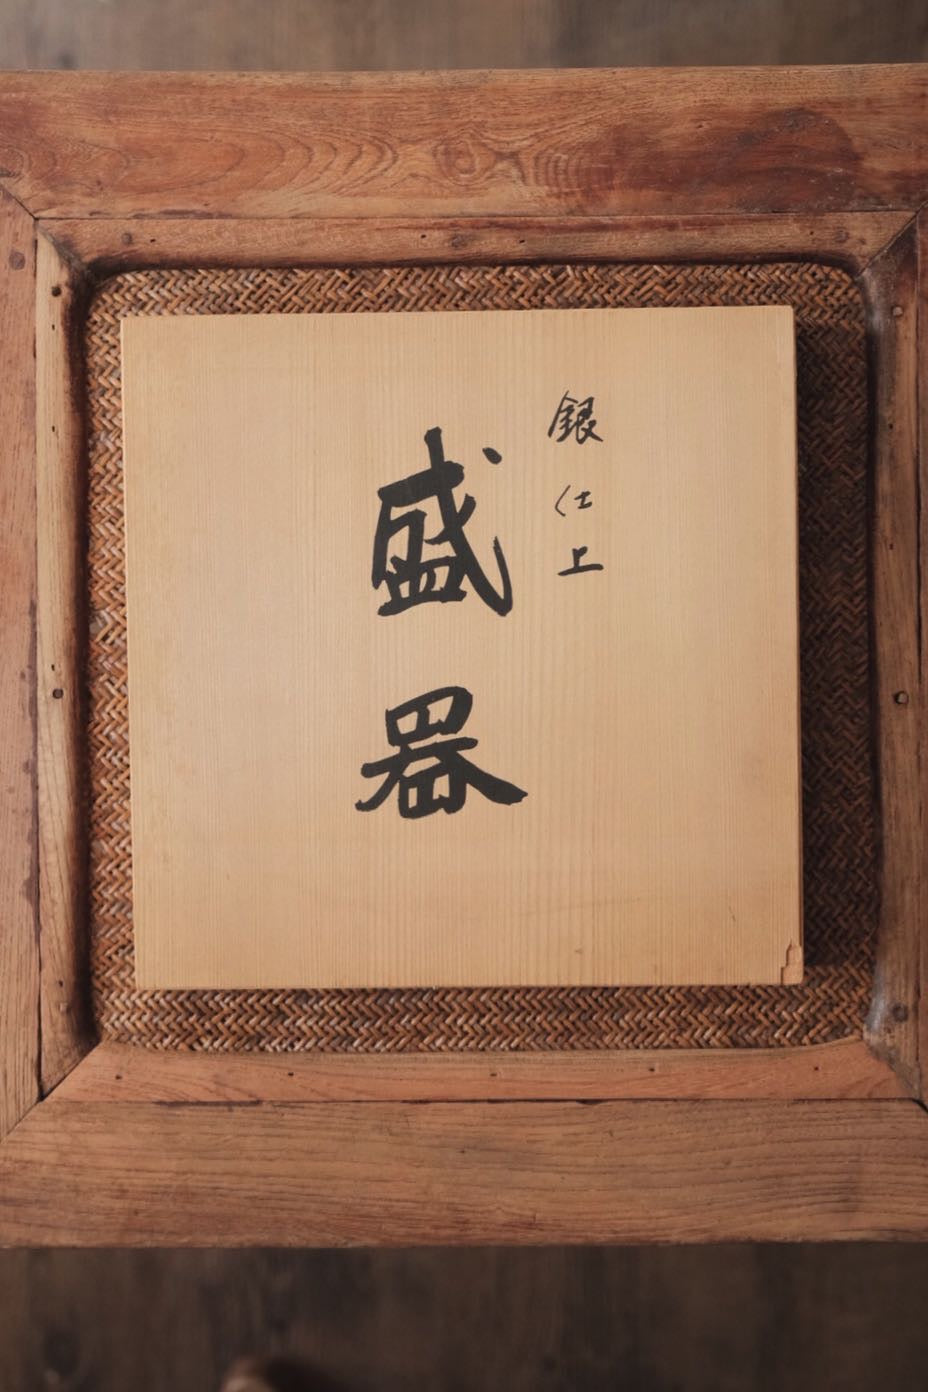 銀仕上
盛器